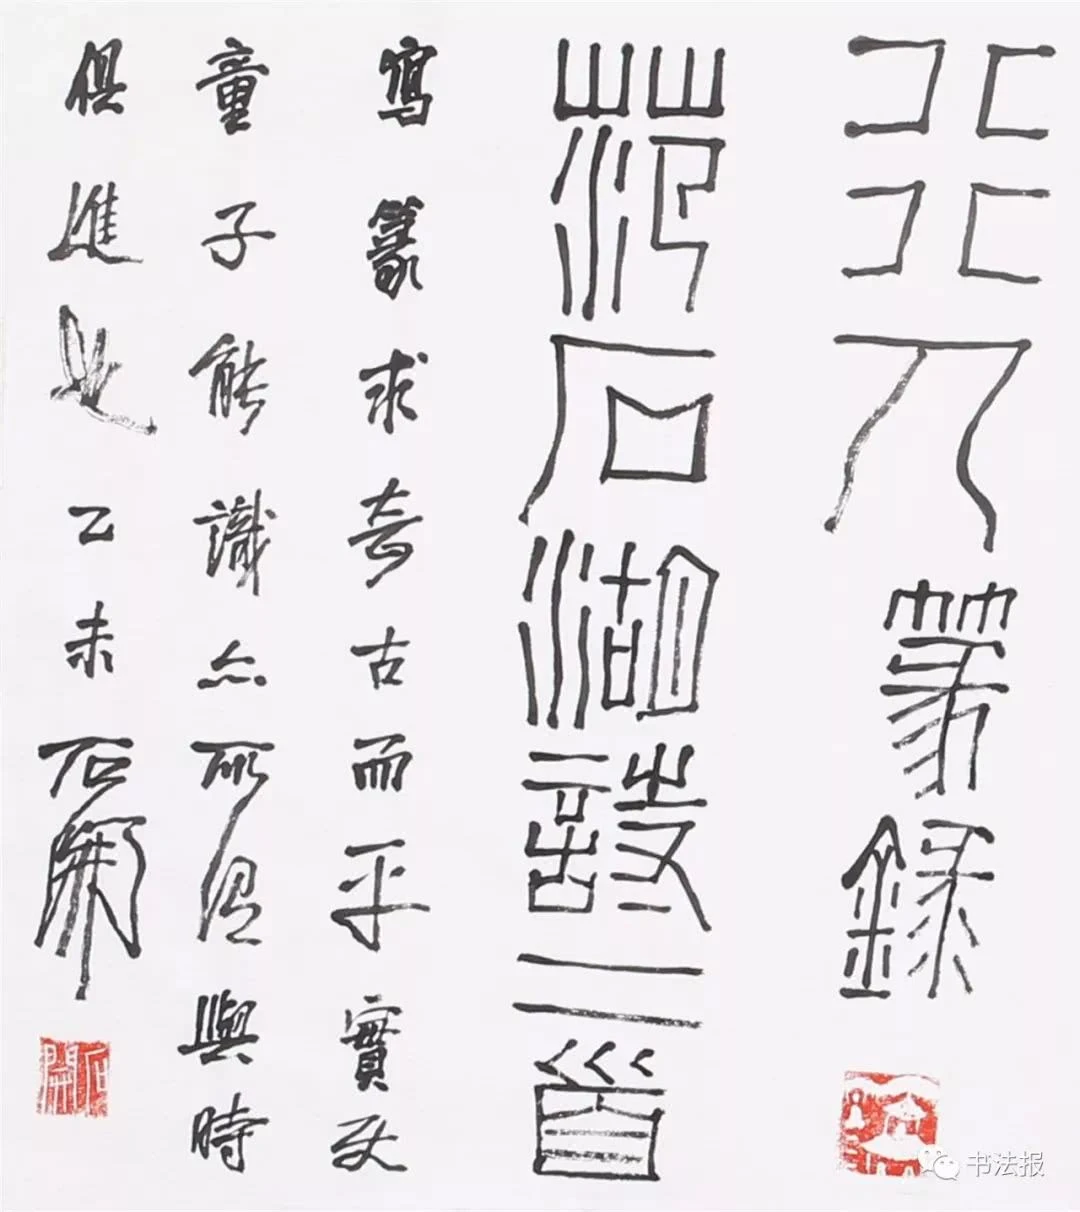 篆錄
范石湖詩二首
寫篆求奇古而平實
童子能識亦所謂與時
俱進也 乙未 石開
石開
书法报